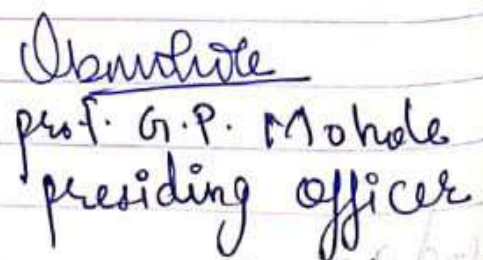 prof. G.P. Mohole
presiding officer